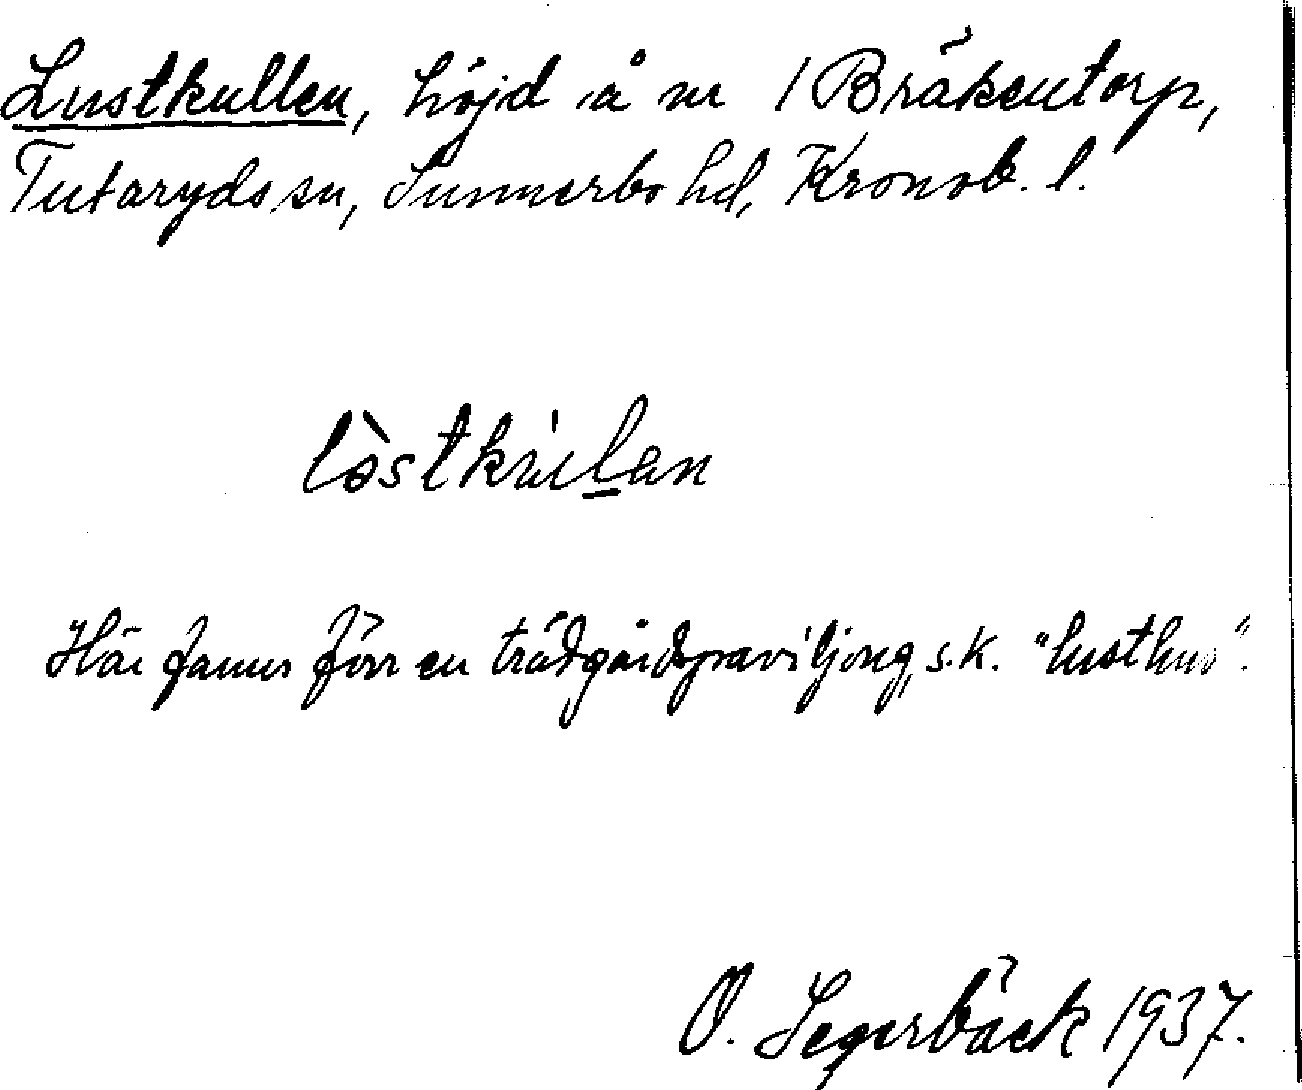 Lustkullen, höjd å nr 1 Bräkentorp,
Tutaryds sn, Sunnerbo hd, Kronob. l.
lòstkúlan
Här fanns förr en trädgårdspaviljong, s.k. "lusthus".
O. Segerbäck 1937.